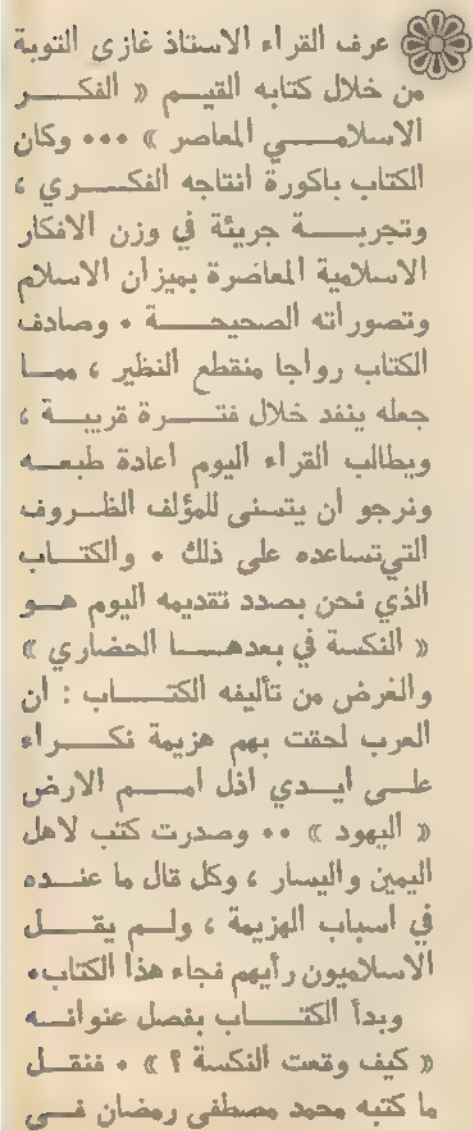 عرف القراء الاستاذ غازي التوبة
من خلال كتابه القيم « الفكر
الاسلامي المعاصر » ٠٠٠ وكان
الكتاب باكورة انتاجه الفكري ،
وتجربة جريئة في وزن الافكار
الاسلامية المعاصرة بميزان الاسلام
وتصوراته الصحيحة ٠ وصادف
الكتاب رواجا منقطع النظير ، مما
جعله ينفد خلال فترة قريبة ،
ويطالب القراء اليوم اعادة طبعه
ونرجو أن يتسنى للمؤلف الظروف
التي تساعده على ذلك ٠ والكتاب
الذي نحن بصدد تقديمه اليوم هو
« النكسة في بعدها الحضاري »
والغرض من تأليفه الكتاب : ان
العرب لحقت بهم هزيمة نكراء
على ايدي اذل امم الارض
« اليهود » ٠٠ وصدرت كتب لاهل
اليمين واليسار ، وكل قال ما عنده
في اسباب الهزيمة ، ولم يقل
الاسلاميون رأيهم فجاء هذا الكتاب٠
وبدأ الكتاب بفصل عنوانه
« كيف وقعت النكسة ؟ » ٠ فنقل
ما كتبه محمد مصطفى رمضان في